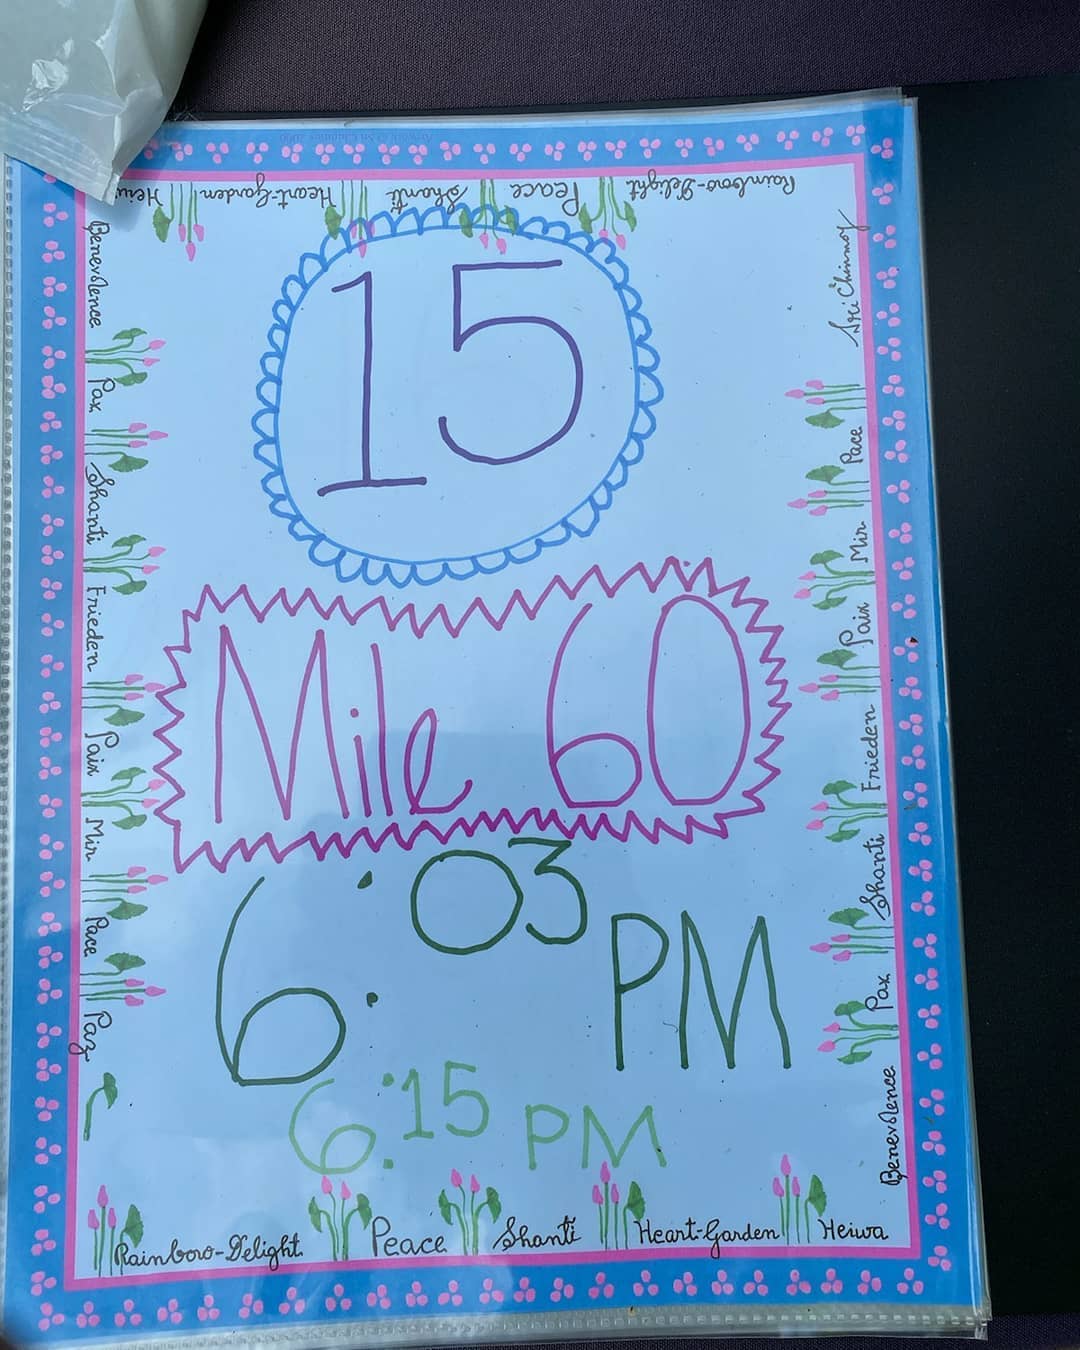 Rainbow-Delight Peace Shanti Heart-Garden
Sri Chinmoy
15
Mile 60
6:03 PM
6:15 PM
Benevolence Pax Shanti Frieden Paix Mir Pace Paz
Benevolence Pax Shanti Frieden Paix Mir Pace
Rainbow-Delight Peace Shanti Heart-Garden Heiwa